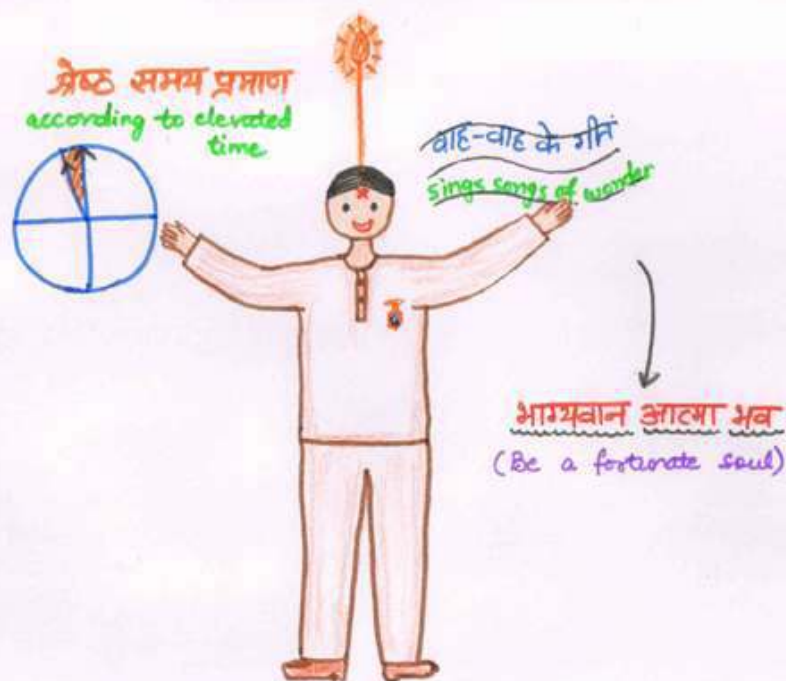 श्रेष्ठ समय प्रमाण
according to elevated
time
वाह-वाह के गीत
sings songs of wonder
भाग्यवान आत्मा भव
(Be a fortunate soul)